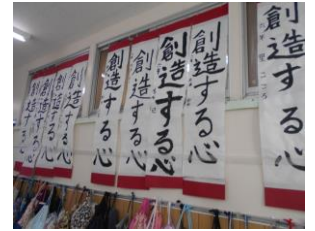 創造する心
創造する心
創造する心
創造する心
創造する心
創造する心
創造する心
創造する心
創造する心